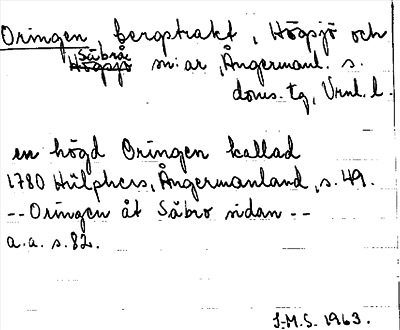 Oringen, bergstrakt, Högsjö och
Säbrå
Högsjö sn:ar, Ångermanl. s.
doms. tg, Vrnl. l.
en högd Oringen kallad
1780 Hülphers, Ångermanland, s. 49.
-- Oringen åt Säbro sidan --
a.a. s. 82.
J.M.S. 1963.